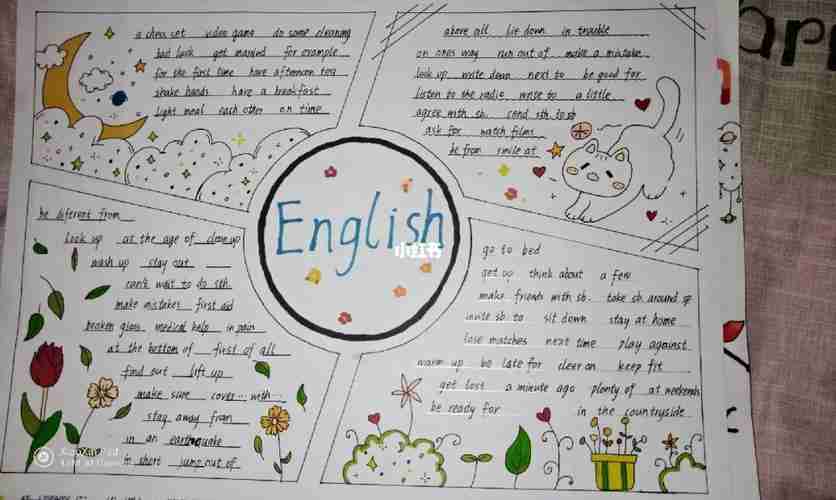 a chess set video game do some cleaning
bad luck get married for example
for the first time have afternoon tea
shake hands have a breakfast
light meal each other on time
above all lie down in trouble
on ones way run out of make a mistake
look up write down next to be good for
listen to the radio write to a little
agree with sb. send sth to sb
ask for watch films
be from smile at
English
小红书
be diferent from
look up at the age of clean up
wash up stay out
can't wait to do sth.
make mistakes first aid
broken glass medical help in pain
at the bottom of first of all
find out lift up
make sure cover...with...
stay away from
in an earthquake
in short jump out of
go to bed
get up think about a few
make friends with sb. take sb. around sp
invite sb. to sit down stay at home
lose matches next time play against
warm up be late for cheer on keep fit
get lost a minute ago plenty of at weekends
be ready for in the countryside